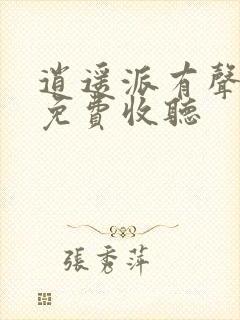 逍遥派有聲
免費收聽
張秀萍